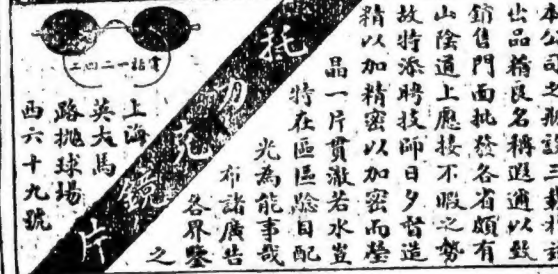 公司之設三載
出品精良名稱遐邇以致
銷售門面批發各省頗有
山陰道上應接不暇之勢
故特添聘技師日夕督造
精以加精密以加密而瑩
晶一片貫澈若水豈
特在區區驗目配
光為能事哉
布諸廣告
各界鑒
之
托力克鏡片
電話一二四二
上海
英大馬
路拋球場
西六十九號